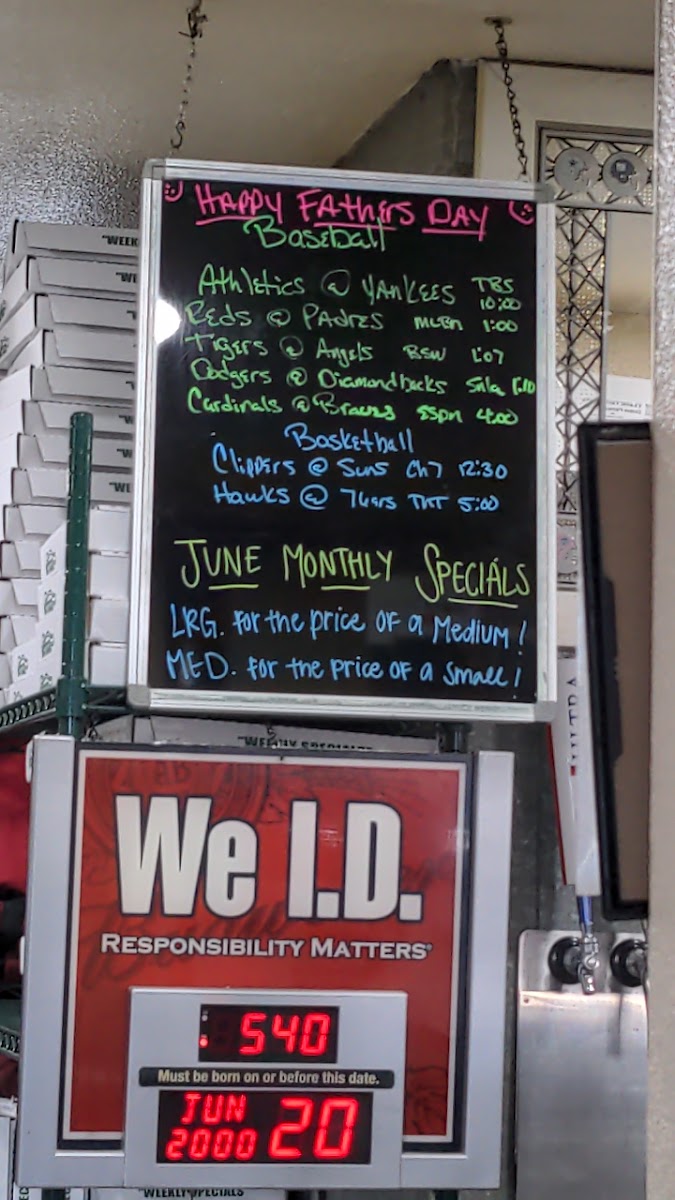 HAPPY FATHERS DAY
Baseball
Athletics @ YANKEES TBS 10:00
Reds @ PADRES MLBN 1:00
Tigers @ Angels BSW 1:07
Dodgers @ Diamondbacks
Cardinals @ Braves 4:00
Basketball
Clippers @ Suns Ch7 12:30
Hawks @ 76ers TNT 5:00
JUNE MONTHLY SPECIALS
LRG. for the price of a Medium!
MED. for the price of a Small!
"WEEKLY SPECIALS
We I.D.
RESPONSIBILITY MATTERS®
540
Must be born on or before this date.
JUN 2000 20
"WEEKLY SPECIALS